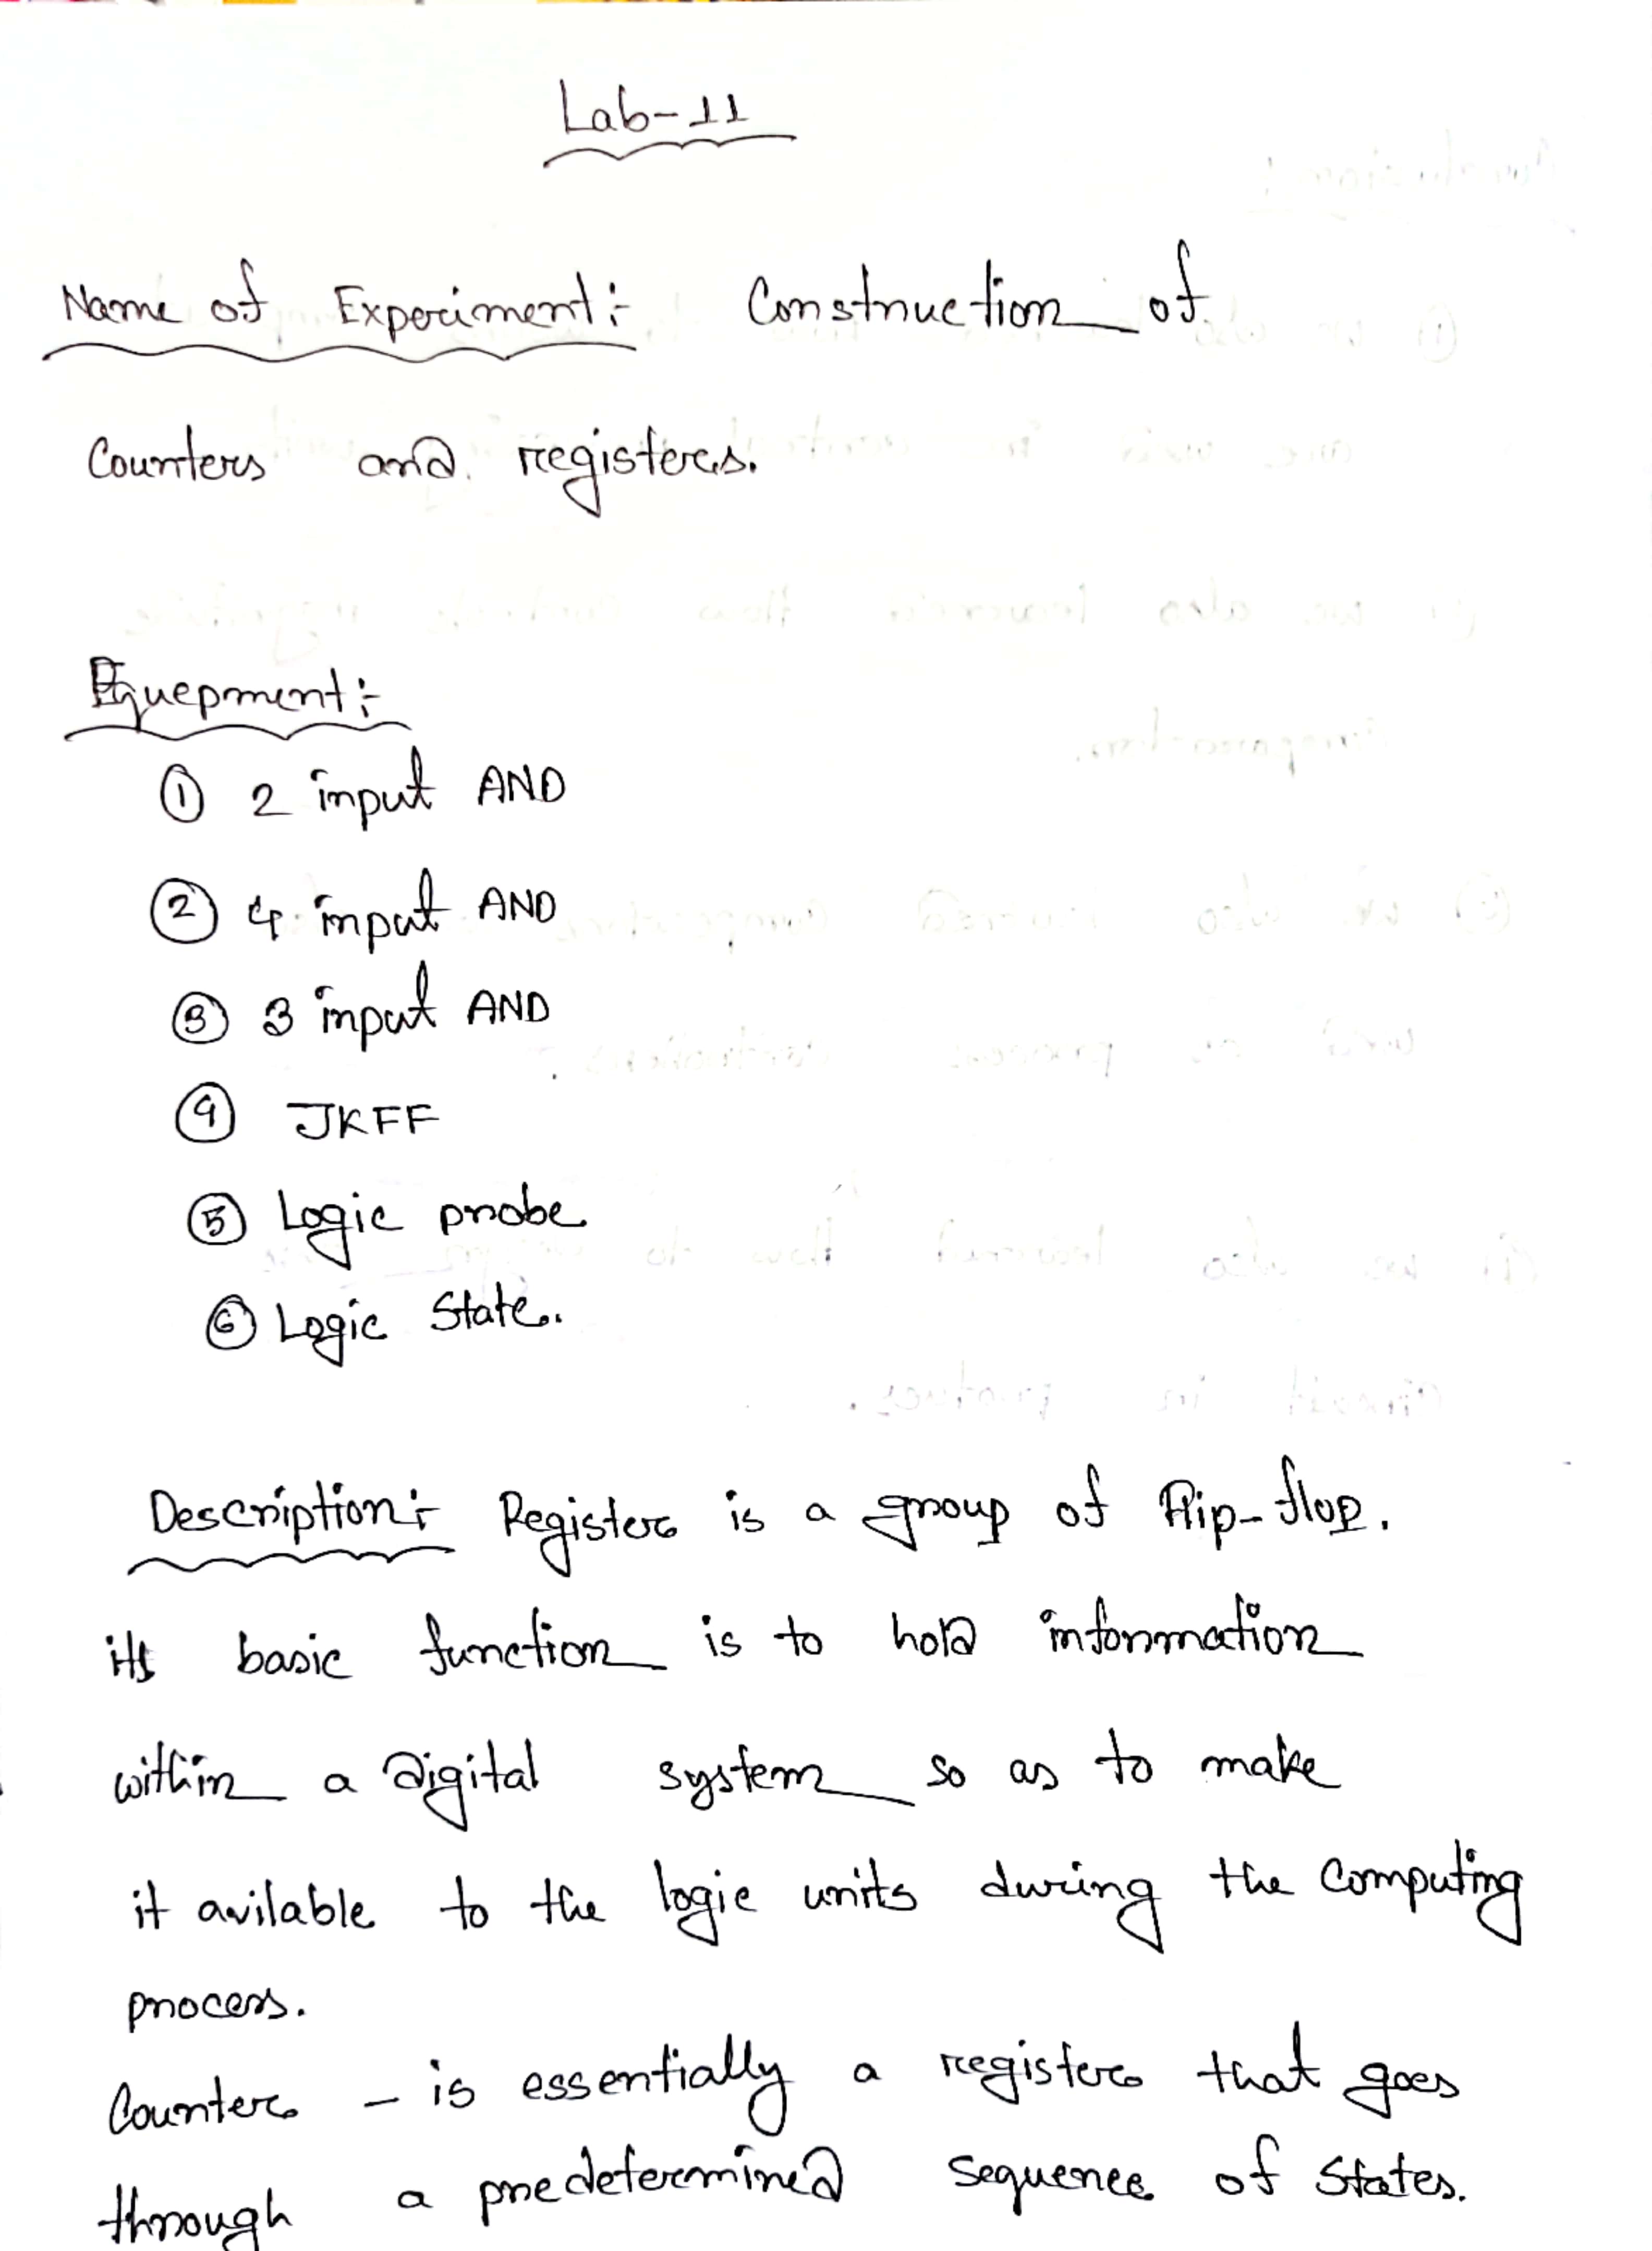 Lab-11
Name of Experiment:- Construction of
Counters and registers.
Equepment:-
① 2 input AND
② 4 input AND
③ 3 input AND
④ JKFF
⑤ Logic probe
⑥ Logic State.
Description:- Register is a group of flip-flop.
its basic function is to hold information
within a digital system so as to make
it avilable to the logic units during the computing
process.
Counter - is essentially a register that goes
through a predetermined sequence of states.